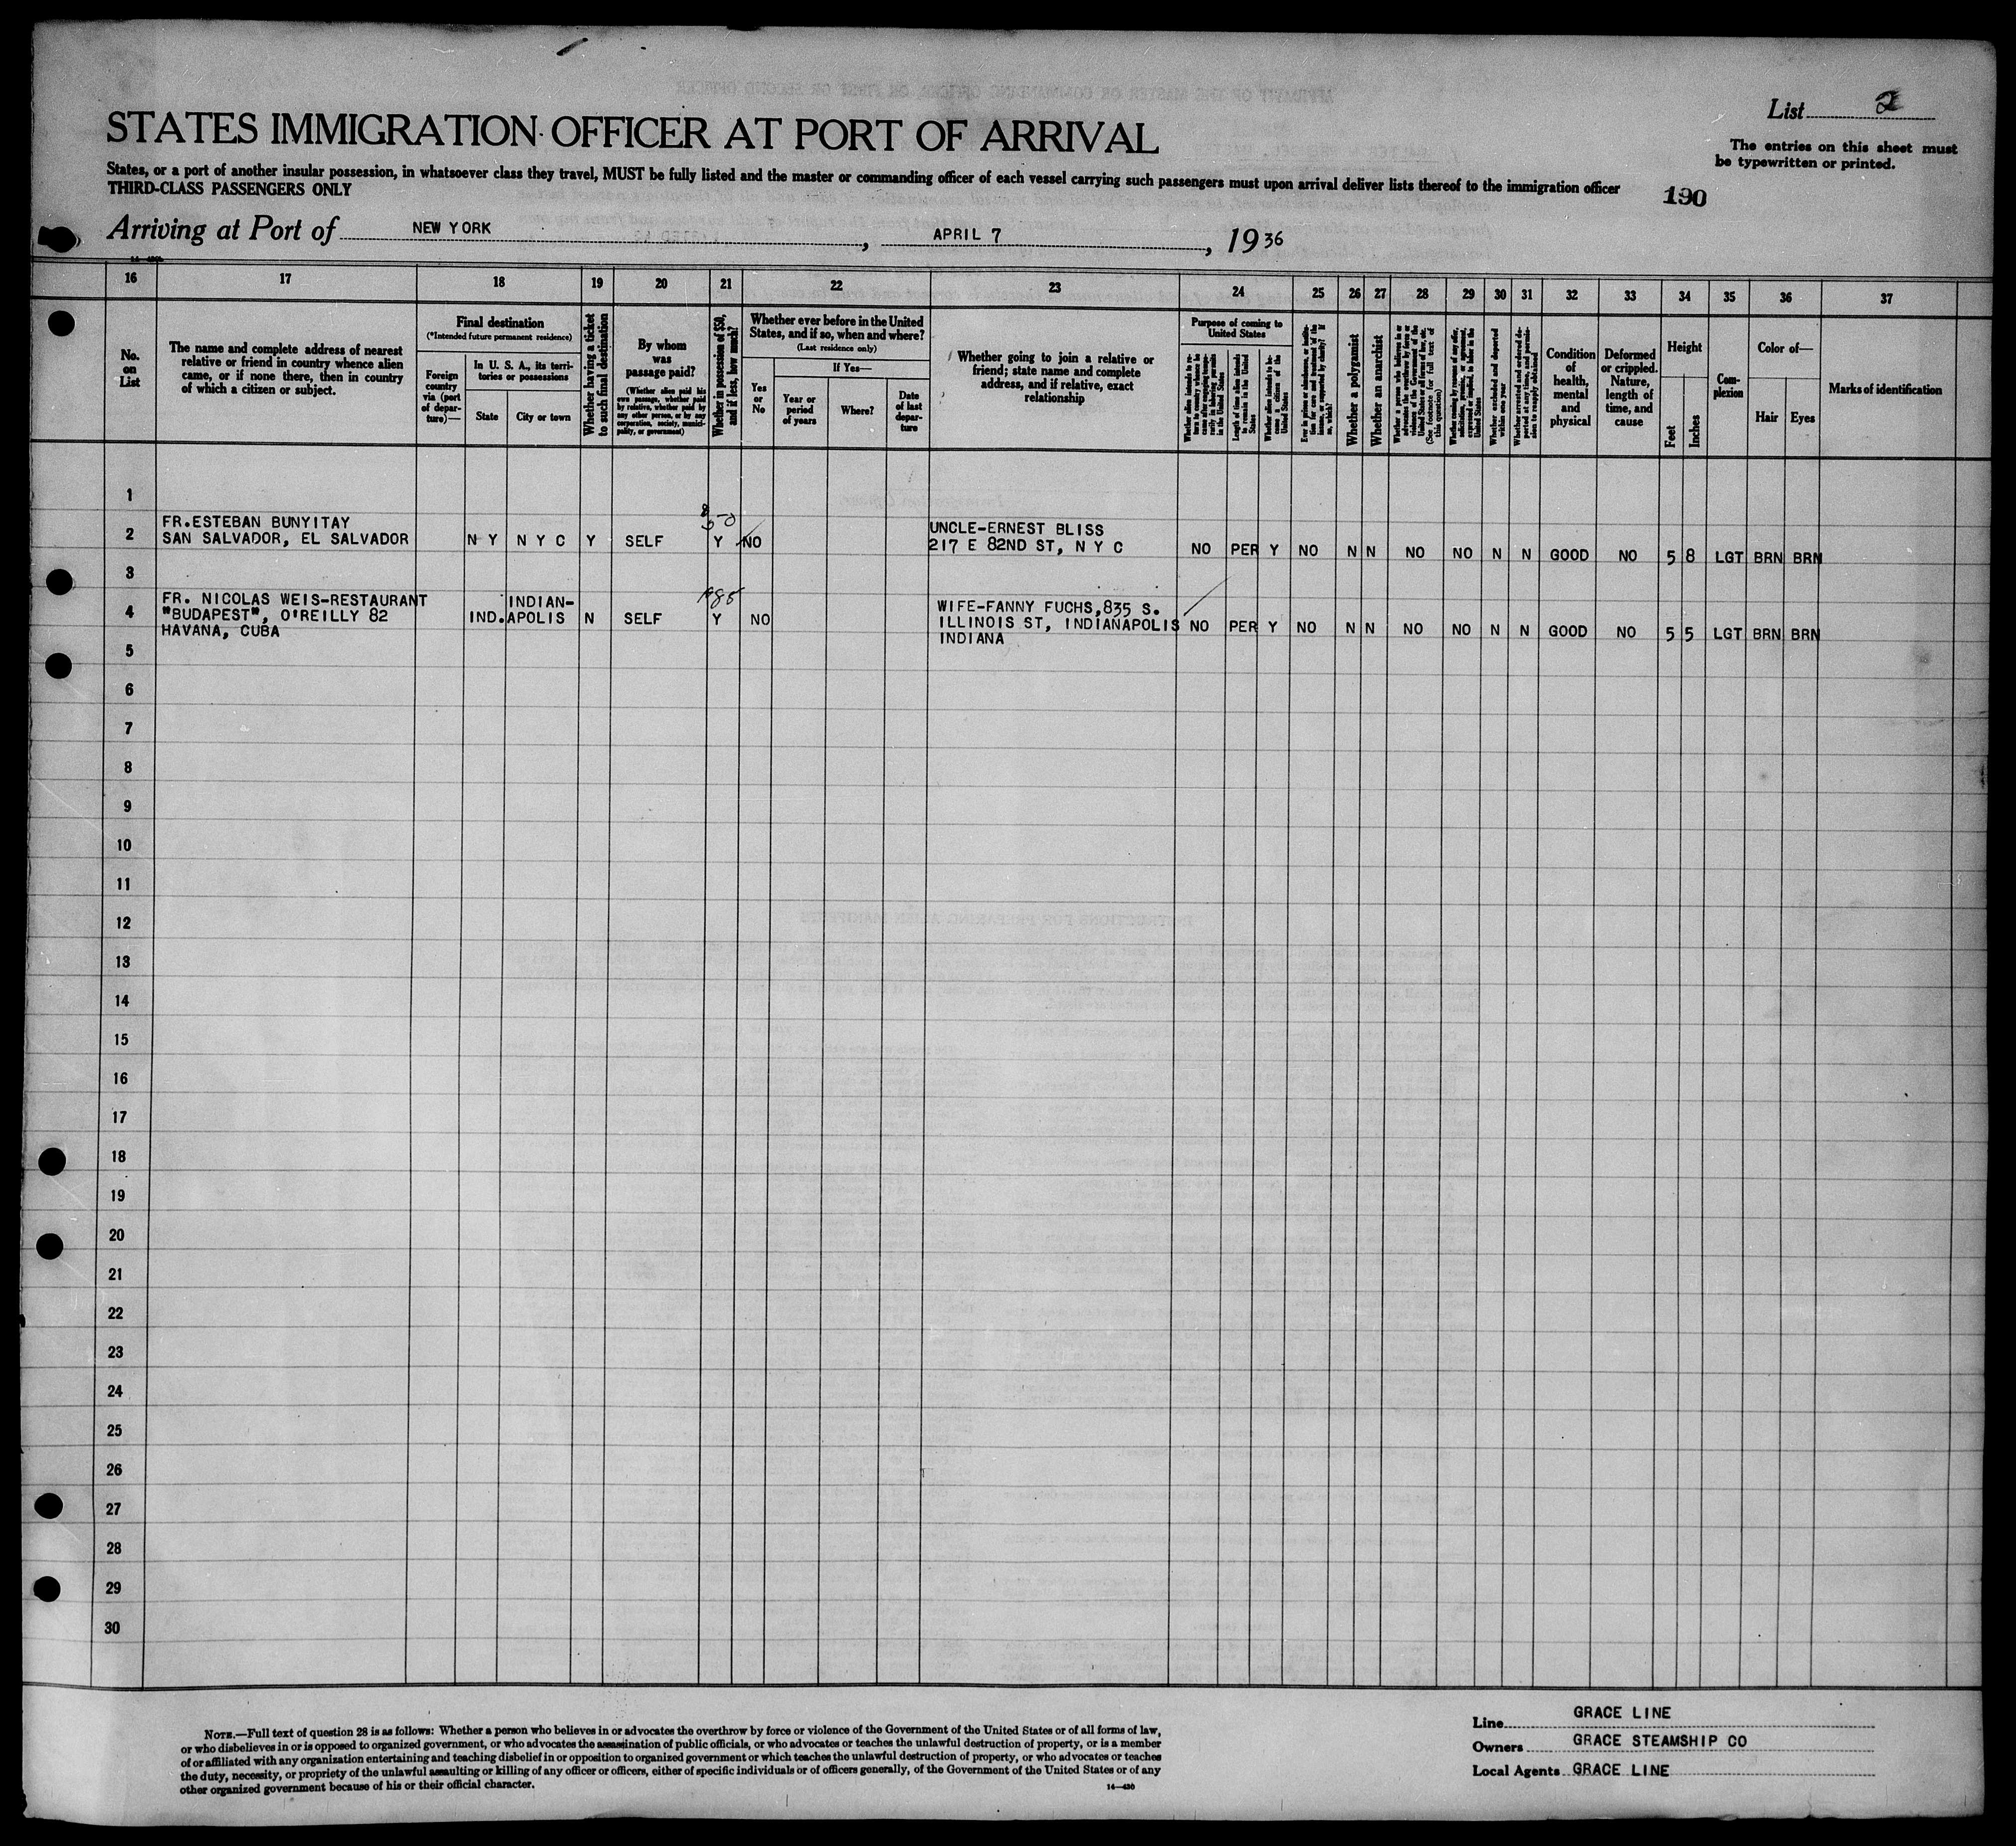 List 2
STATES IMMIGRATION OFFICER AT PORT OF ARRIVAL
The entries on this sheet must
be typewritten or printed.
States, or a port of another insular possession, in whatsoever class they travel, MUST be fully listed and the master or commanding officer of each vessel carrying such passengers must upon arrival deliver lists thereof to the immigration officer
THIRD-CLASS PASSENGERS ONLY
190
Arriving at Port of NEW YORK, APRIL 7, 1936
16 17 18 19 20 21 22 23 24 25 26 27 28 29 30 31 32 33 34 35 36 37
No.
on
List
The name and complete address of nearest
relative or friend in country whence alien
came, or if none there, then in country
of which a citizen or subject.
Final destination
(*Intended future permanent residence)
Foreign
country
via (port
of depar-
ture)—
In U. S. A., its terri-
tories or possessions
State
City or town
Whether having a ticket
to such final destination
By whom
was
passage paid?
(Whether alien paid his
own passage, whether paid
by relative, whether paid by
any other person, or by any
corporation, society, munici-
pality, or government)
Whether in possession of $50,
and if less, how much?
Whether ever before in the United
States, and if so, when and where?
(Last residence only)
Yes
or
No
If Yes—
Year or
period
of years
Where?
Date
of last
depar-
ture
Whether going to join a relative or
friend; state name and complete
address, and if relative, exact
relationship
Purpose of coming to
United States
Whether alien intends to re-
turn to country whence he
came after engaging tempo-
rarily in laboring pursuits
in the United States
Length of time alien intends
to remain in the United
States
Whether alien intends to be-
come a citizen of the
United States
Ever in prison or almshouse, or institu-
tion for care and treatment of the
insane, or supported by charity? If
so, which?
Whether a polygamist
Whether an anarchist
Whether a person who believes in or
advocates the overthrow by force or
violence of the Government of the
United States or all forms of law, etc.
(See footnote for full text of
this question)
Whether coming by reason of any offer,
solicitation, promise, or agreement,
expressed or implied, to labor in the
United States
Whether excluded and deported
within one year
Whether arrested and ordered de-
ported at any time, and permis-
sion to reapply obtained
Condition
of
health,
mental
and
physical
Deformed
or crippled.
Nature,
length of
time, and
cause
Height
Feet
Inches
Com-
plexion
Color of—
Hair
Eyes
Marks of identification
1
FR.ESTEBAN BUNYITAY
UNCLE-ERNEST BLISS
2 SAN SALVADOR, EL SALVADOR N Y N Y C Y SELF Y NO 217 E 82ND ST, N Y C NO PER Y NO N N NO NO N N GOOD NO 5 8 LGT BRN BRN
3
FR. NICOLAS WEIS-RESTAURANT INDIAN- WIFE-FANNY FUCHS,835 S.
4 "BUDAPEST", O'REILLY 82 IND. APOLIS N SELF Y NO ILLINOIS ST, INDIANAPOLIS NO PER Y NO N N NO NO N N GOOD NO 5 5 LGT BRN BRN
HAVANA, CUBA INDIANA
5
6
7
8
9
10
11
12
13
14
15
16
17
18
19
20
21
22
23
24
25
26
27
28
29
30
NOTE.—Full text of question 28 is as follows: Whether a person who believes in or advocates the overthrow by force or violence of the Government of the United States or of all forms of law,
or who disbelieves in or is opposed to organized government, or who advocates the assassination of public officials, or who advocates or teaches the unlawful destruction of property, or is a member
of or affiliated with any organization entertaining and teaching disbelief in or opposition to organized government or which teaches the unlawful destruction of property, or who advocates or teaches
the duty, necessity, or propriety of the unlawful assaulting or killing of any officer or officers, either of specific individuals or of officers generally, of the Government of the United States or of any
other organized government because of his or their official character.
14—430
Line GRACE LINE
Owners GRACE STEAMSHIP CO
Local Agents GRACE LINE